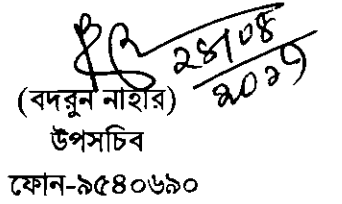 ২৪/০৪
২০২৭
(বদরুন নাহার)
উপসচিব
ফোন-৯৫৪০৬৯০